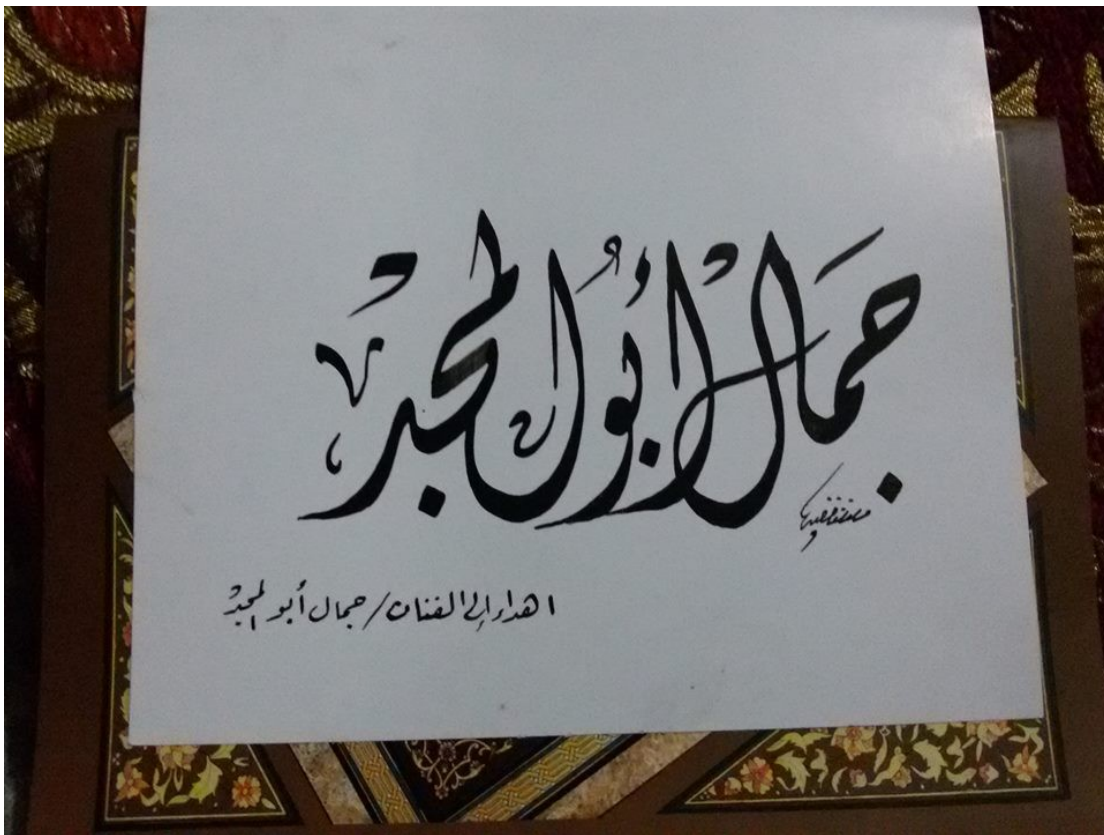 جمال أبو المجد
اهداء إلى الفنان / جمال أبو المجد